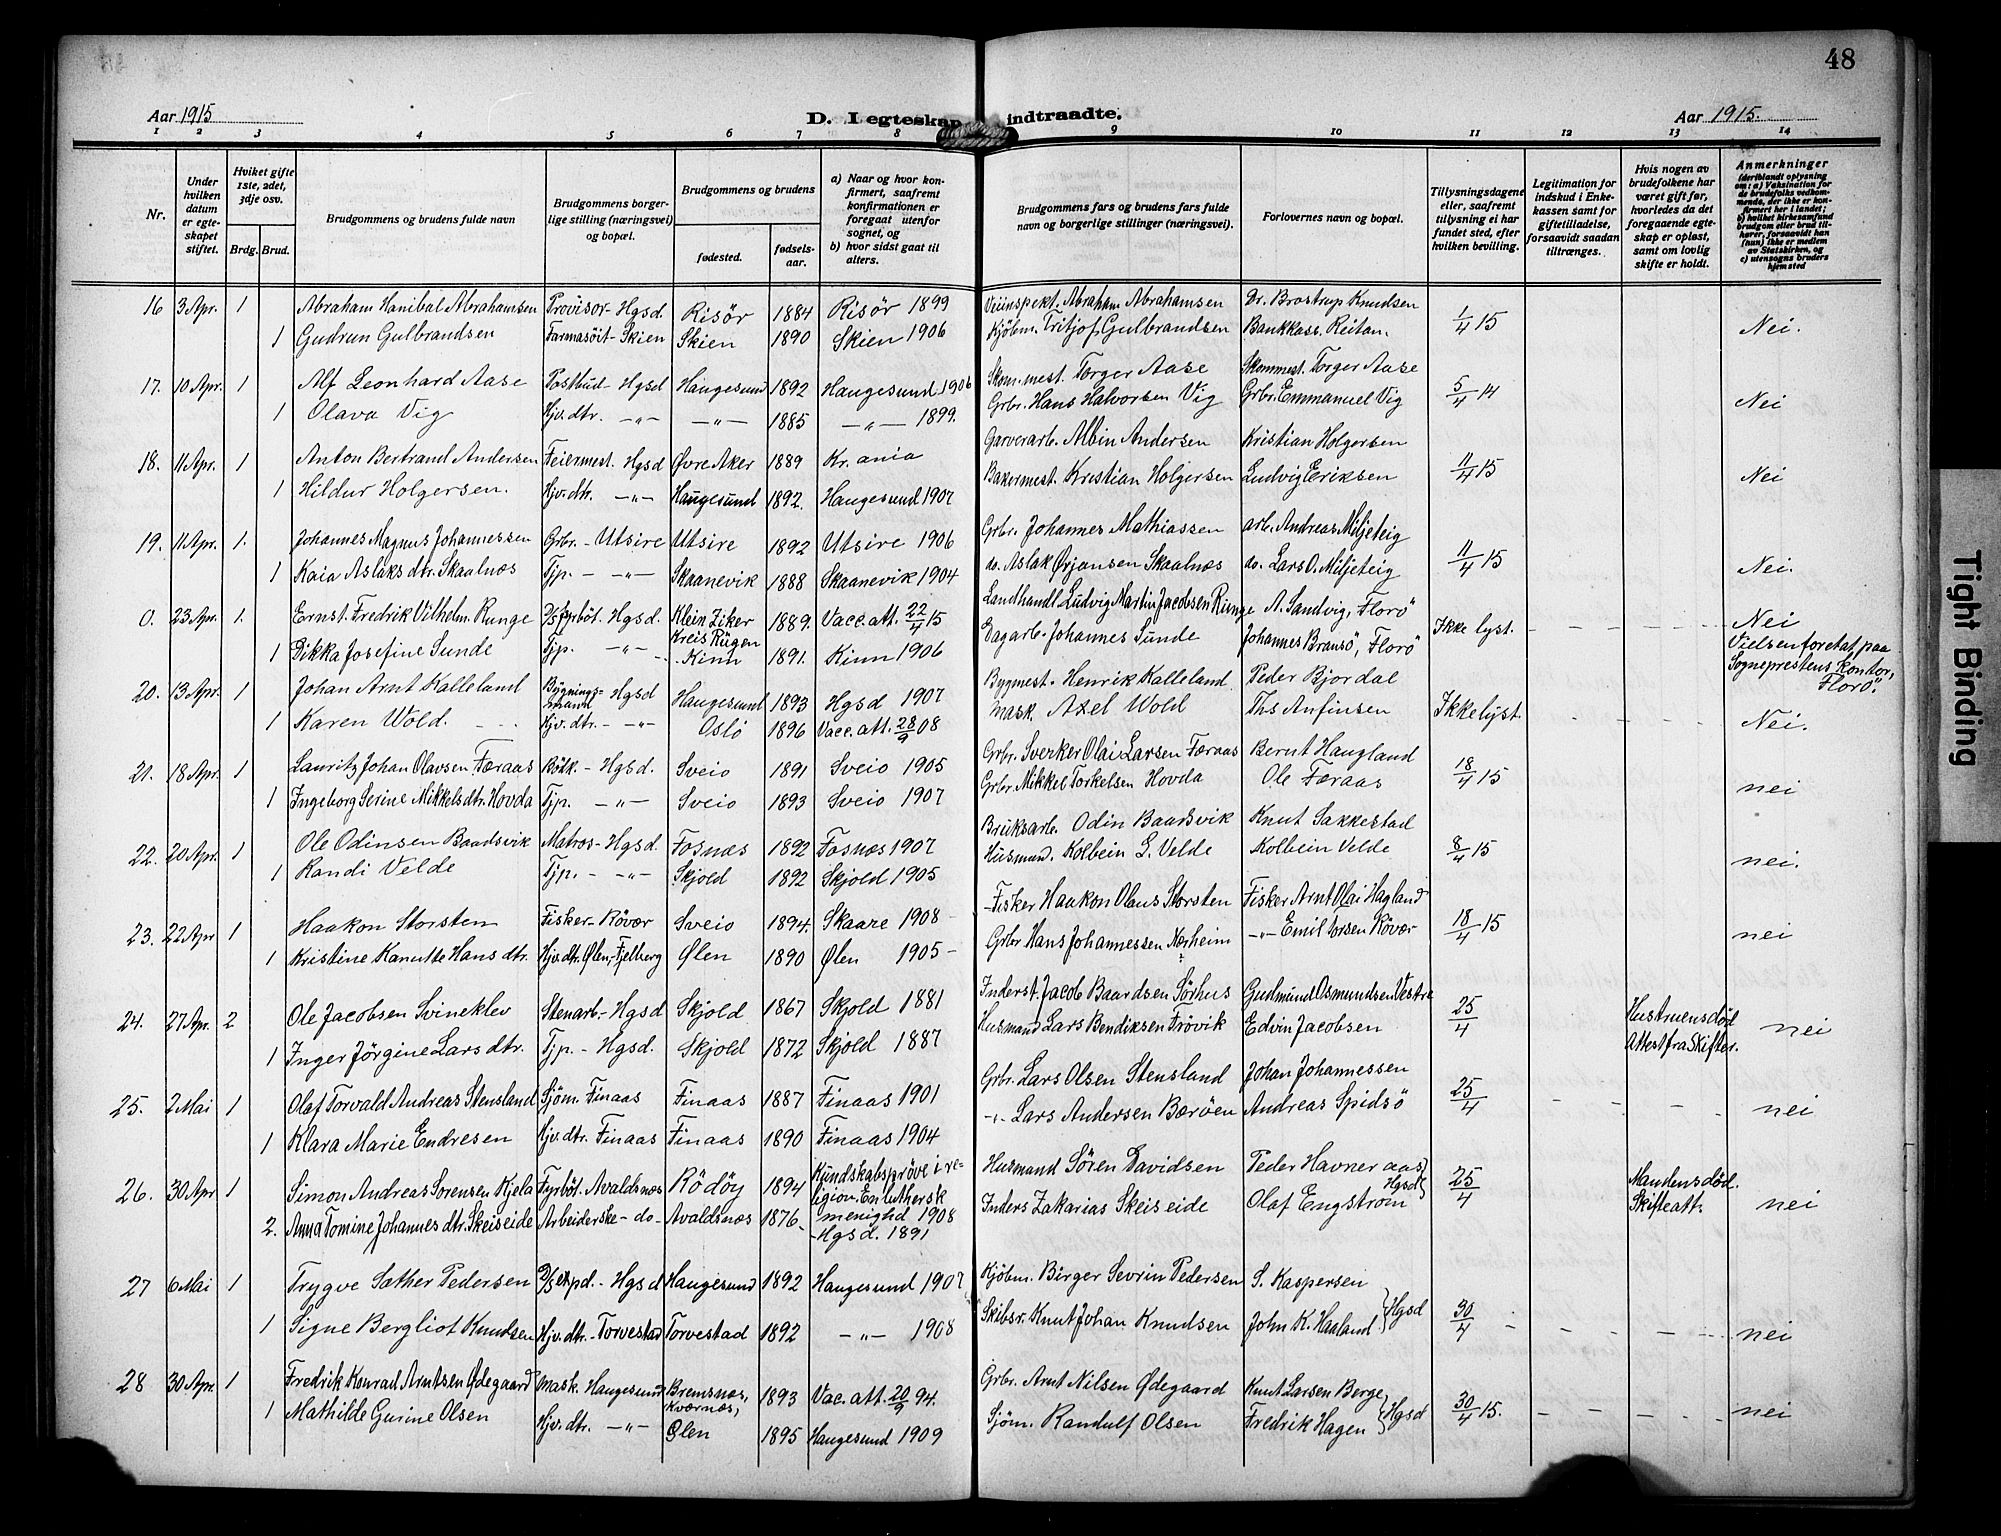 48
Aar 1915
D. Iegteskap indtraadte.
Aar 1915.
1 2 3 4 5 6 7 8 9 10 11 12 13 14
Nr.
Under hvilken datum er egteskapet stiftet.
Hviket gifte 1ste, 2det, 3dje osv.
Brdg. Brud.
Brudgommens og brudens fulde navn
Brudgommens borgerlige stilling (næringsvei) og bopæl.
Brudgommens og brudens
fødested.
fødselsaar.
a) Naar og hvor konfirmert, saafremt konfirmationen er foregaat utenfor sognet, og
b) hvor sidst gaat til alters.
Brudgommens fars og brudens fars fulde navn og borgerlige stillinger (næringsvei).
Forlovernes navn og bopæl.
Tillysningsdagene eller, saafremt tillysning ei har fundet sted, efter hvilken bevilling.
Legitimation for indskud i Enkekassen samt for giftetilladelse, forsaavidt saadan tiltrænges.
Hvis nogen av brudefolkene har været gift før, hvorledes da det foregaaende egteskap er opløst, samt om lovlig skifte er holdt.
Anmerkninger (deriblandt oplysning om: a) Vaksination for de brudefolks vedkommende, der ikke er konfirmert her i landet; b) hvilket kirkesamfund brudgom eller brud tilhører, forsaavidt han (hun) ikke er medlem av Statskirken, og c) utensogns bruders hjemsted
16 3 Apr. 1 Abraham Hanibal Abrahamsen Provisor - Hgsd. Risör 1884 Risör 1899 Veiinspekt. Abraham Abrahamsen Dr. Brostrup Knudsen 1/4 15 Nei.
1 Gudrun Gulbrandsen Farmasöit - Skien Skien 1890 Skien 1906 Kjöbm. Fritjof Gulbrandsen Bankkass. Reitan.
17. 10 Apr. 1 Alf Leonhard Aase Postbud - Hgsd Haugesund 1892 Haugesund 1906 Skom.mest. Torger Aase Skommest. Torger Aase 5/4 14 Nei
1 Olava Vig Hjv. dtr. -"- -"- 1885 -"- 1899. Grbr. Hans Halvorsen Vig Grbr. Emmanuel Vig
18. 11 Apr. 1 Anton Bertrand Andersen Feiermest. Hgsd Øvre Aker 1889 Kr.ania Garverarb. Albin Andersen Kristian Holgersen 11/4 15 Nei
1 Hildur Holgersen. Hjv. dtr. -"- Haugesund 1892. Haugesund 1907 Bakermest. Kristian Holgersen Ludvig Eriksen
19. 11 Apr. 1. Johannes Magnus Johannessen Grbr. - Utsire Utsire 1892 Utsire 1906 Grbr. Johannes Mathiassen arb. Andreas Miljeteig 11/4 15 Nei.
1 Kaia Aslaksdtr. Skaalnæs Tjp. - -"- Skaanevik 1888 Skaanevik 1904 do. Aslak Ørjansen Skaalnæs do. Lars O. Miljeteig
0. 23 Apr. 1. Ernst Fredrik Vilhelm Runge D/S fyrböt. Hgsd. Klein Ziker Kreis Rügen 1889. Vacc. att. 22/4 15 Landhandl. Ludvig Martin Jacobsen Runge A. Sandvig, Florö Ikke lyst. Nei
1 Rikka Josefine Sunde Tjp. -"- Kinn 1891. Kinn 1906 Dagarb. Johannes Sunde Johannes Bransö, Florö Vielsen foretat paa Sogneprestens kontor, Florö.
20. 13 Apr. 1 Johan Arnt Kalleland Bygningsmand Hgsd Haugesund 1893 Hgsd 1907 Bygmest. Henrik Kalleland Peder Bjordal Ikke lyst. Nei.
1 Karen Wold. Hjv. dtr. -"- Oslo 1896 Vacc. att. 28/9 08 Mask. Axel Wold Ths Anfinsen
21. 18 Apr. 1 Lauritz Johan Olavsen Færaas Bökk. - Hgsd. Sveio 1891 Sveio 1905 Grbr. Sverker Olai Larsen Færaas Bernt Haugland 18/4 15 nei
1 Ingeborg Serine Mikkelsdtr. Hovda Tjp. -"- Sveio 1893 Sveio 1907 Grbr. Mikkel Torkelsen Hovda Ole Færaas
22. 20 Apr. 1 Ole Odinsen Baadsvik Matros - Hgsd. Fosnæs 1892 Fosnæs 1907 Bruksarb. Odin Baadsvik Knut Sakkestad 8/4 15 nei.
1 Randi Velde Tjp. - -"- Skjold 1892 Skjold 1905 Husmand. Kolbein L. Velde Kolbein Velde
23. 22 Apr 1 Haakon Storsten Fisker - Rövær Sveio 1894. Skaare 1908 Fisker Haakon Olaus Storsten Fisker Arnt Olai Hagland 18/4 15 nei
1 Kristine Kanutte Hansdtr. Hjv. dtr. Ølen, Fjelberg Ølen 1890 Ølen 1905 Grbr Hans Johannessen Nærheim -"- Emil Torsen Rövær
24. 27 Apr. 2 Ole Jacobsen Svineklev Stenarb. - Hgsd Skjold 1867 Skjold 1881 Inderst. Jacob Baardsen Sörhus Gudmund Osmundsen Vestre 25/4 Hustruens död Attest fra Skifter. nei
1 Inger Jörgine Larsdtr. Tjp. - Hgsd. Skjold 1872 Skjold 1887 Husmand Lars Bendiksen Frövik Edvin Jacobsen
25. 2 Mai 1 Olaf Torvald Andreas Stensland Sjöm. Finaas Finaas 1887 Finaas 1901 Grbr. Lars Olsen Stensland Johan Johannessen 25/4 nei
1 Klara Marie Endresen Hjv. dtr. Finaas Finaas 1890 Finaas 1904 -"- Lars Andersen Bærøen Andreas Spidsö
26. 30 Apr 1 Simon Andreas Sorensen Kjela Fyrböt. Avaldsnæs Rödöy 1894 Kundskabspröve i religion. En luthersk menighd 1908 Husmand Sören Davidsen Peder Havneraas Hgsd 25/4 Mandens död. Skifteatt. nei
2. Anna Tomine Johannesdtr. Skeiseide Arbeiderske - do - Avaldsnæs 1876 Hgsd. 1891 Inders Zakarias Skeiseide Olaf Engström
27 6 Mai 1 Trygve Sæther Pedersen D/S exped. - Hgsd Haugesund 1892 Haugesund 1907 Kjöbm. Birger Sevrin Pedersen S. Kaspersen Hgsd 30/4 nei
1 Signe Bergliot Knudsen Hjv. dtr. - Torvestad Torvestad 1892 -"- 1908 Skibsr. Knut Johan Knudsen John K. Haaland
28 30 Apr. 1 Fredrik Konrad Arntsen Ødegaard Mask. Haugesund Bremsnæs, Kværnæs, 1893 Vac. att. 20/9 94. Grbr. Arnt Nilsen Ødegaard Knut Larsen Berge Hgsd 30/4 15. nei
1 Mathilde Gurine Olsen Hjv. dtr. -"- Ølen 1895 Haugesund 1909 Sjöm. Randulf Olsen Fredrik Hagen
Tight Binding